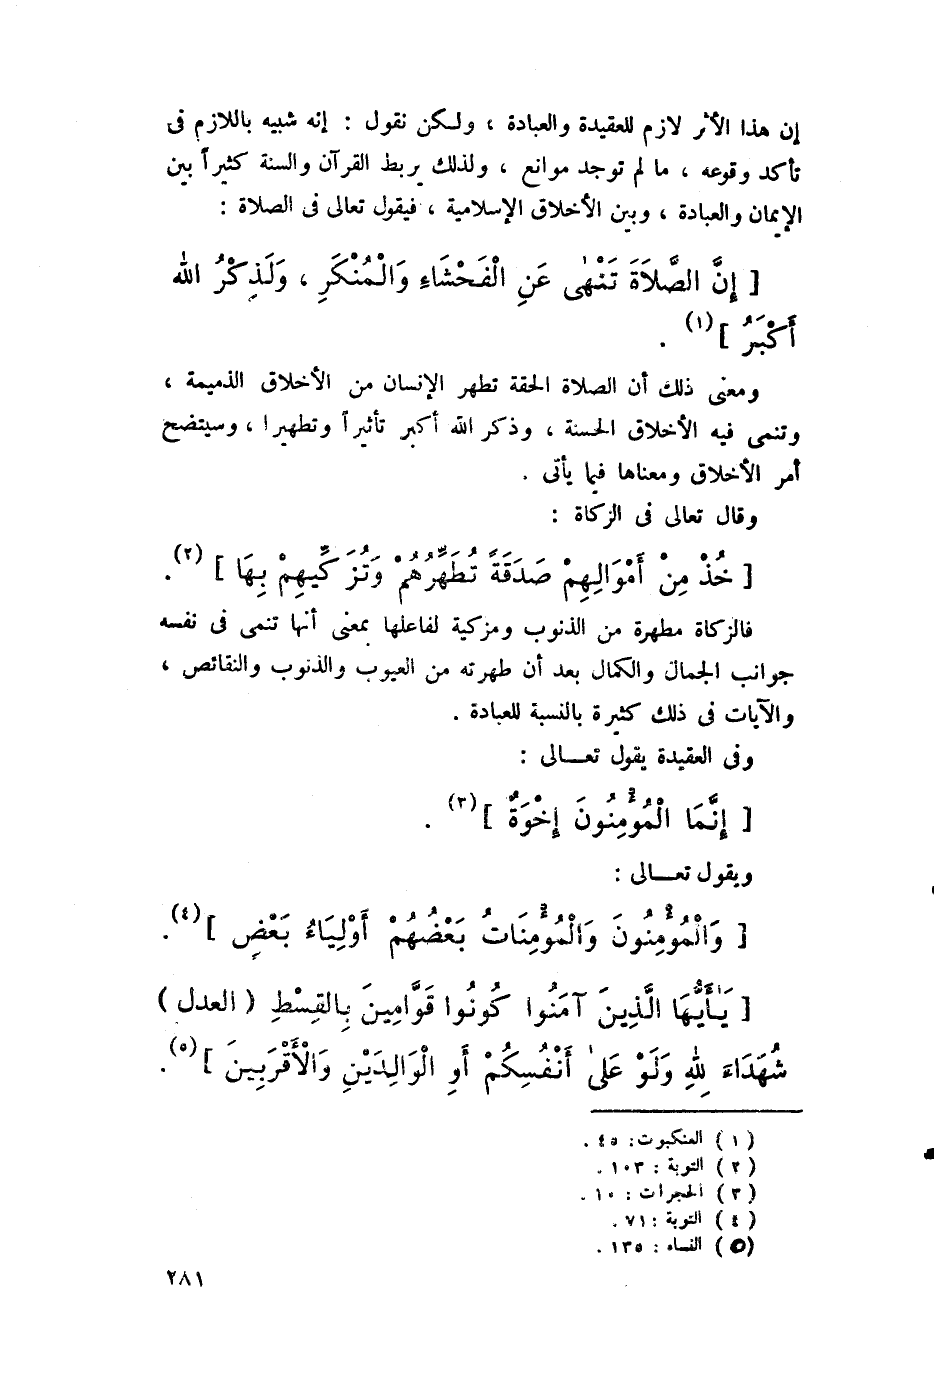 إن هذا الأثر لازم للعقيدة والعبادة ، ولكن نقول : إنه شبيه باللازم فى
تأكد وقوعه ، ما لم توجد موانع ، ولذلك يربط القرآن والسنة كثيراً بين
الإيمان والعبادة ، وبين الأخلاق الإسلامية ، فيقول تعالى فى الصلاة :
[ إِنَّ الصَّلَاةَ تَنْهَىٰ عَنِ الْفَحْشَاءِ وَالْمُنْكَرِ ، وَلَذِكْرُ اللَّه
أَكْبَرُ ] (١) .
ومعنى ذلك أن الصلاة الحقة تطهر الإنسان من الأخلاق الذميمة ،
وتنمى فيه الأخلاق الحسنة ، وذكر الله أكبر تأثيراً وتطهيرا ، وسيتضح
أمر الأخلاق ومعناها فيما يأتى .
وقال تعالى فى الزكاة :
[ خُذْ مِنْ أَمْوَالِهِمْ صَدَقَةً تُطَهِّرُهُمْ وَتُزَكِّيهِمْ بِهَا ] (٢).
فالزكاة مطهرة من الذنوب ومزكية لفاعلها بمعنى أنها تنمى فى نفسه
جوانب الجمال والكمال بعد أن طهرته من العيوب والذنوب والنقائص ،
والآيات فى ذلك كثيرة بالنسبة للعبادة .
وفى العقيدة يقول تعـــالى :
[ إِنَّمَا الْمُؤْمِنُونَ إِخْوَةٌ ] (٣) .
ويقول تعـــالى :
[ وَالْمُؤْمِنُونَ وَالْمُؤْمِنَاتُ بَعْضُهُمْ أَوْلِيَاءُ بَعْضٍ ] (٤).
[ يَٰأَيُّهَا الَّذِينَ آمَنُوا كُونُوا قَوَّامِينَ بِالقِسْطِ ( العدل )
شُهَدَاءَ لِلَّهِ وَلَوْ عَلَىٰ أَنْفُسِكُمْ أَوِ الْوَالِدَيْنِ وَالْأَقْرَبِينَ ] (٥).
( ١ ) العنكبوت : ٤٥ .
( ٢ ) التوبة : ١٠٣ .
( ٣ ) الحجرات : ١٠ .
( ٤ ) التوبة : ٧١ .
(٥ ) النساء : ١٣٥ .
٢٨١